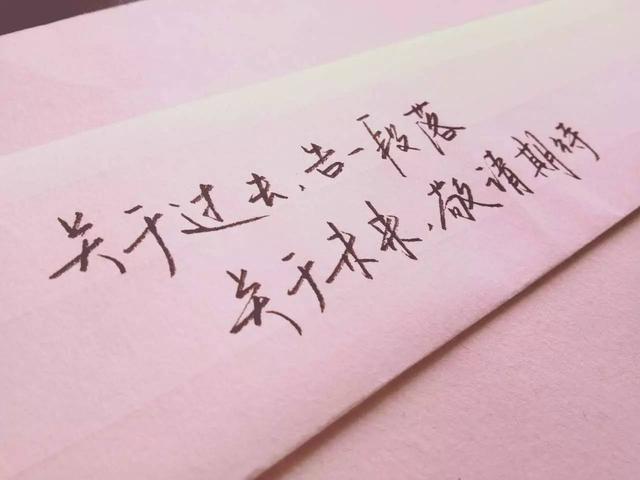 关于过去,告一段落
关于未来,敬请期待